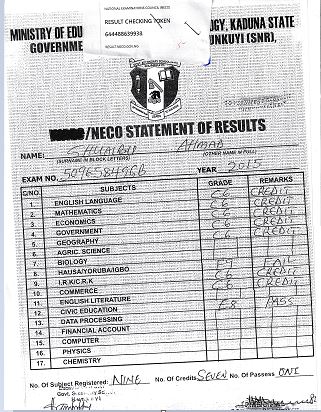 NATIONAL EXAMINATIONS COUNCIL (NECO)
RESULT CHECKING TOKEN
644488639938
RESULT.NECO.GOV.NG
MINISTRY OF EDU OGY, KADUNA STATE
GOVERNME UNKUYI (SNR),
/NECO STATEMENT OF RESULTS
NAME: AHMAD
(SURNAME IN BLOCK LETTERS) (OTHER NAME IN FULL)
EXAM NO. YEAR 2015
C/NO. SUBJECTS GRADE REMARKS
1. ENGLISH LANGUAGE C6 CREDIT
2. MATHEMATICS C6 CREDIT
3. ECONOMICS C6 CREDIT
4. GOVERNMENT C6 CREDIT
5. GEOGRAPHY
6. AGRIC. SCIENCE
7. BIOLOGY F9 FAIL
8. HAUSA/YORUBA/IGBO C6 CREDIT
9. I.R.K/C.R.K C6 CREDIT
10. COMMERCE
11. ENGLISH LITERATURE E8 PASS
12. CIVIC EDUCATION
13. DATA PROCESSING
14. FINANCIAL ACCOUNT
15. COMPUTER
16. PHYSICS
17. CHEMISTRY
No. Of Subject Registered: NINE No. Of Credits SEVEN No. Of Passess ONE